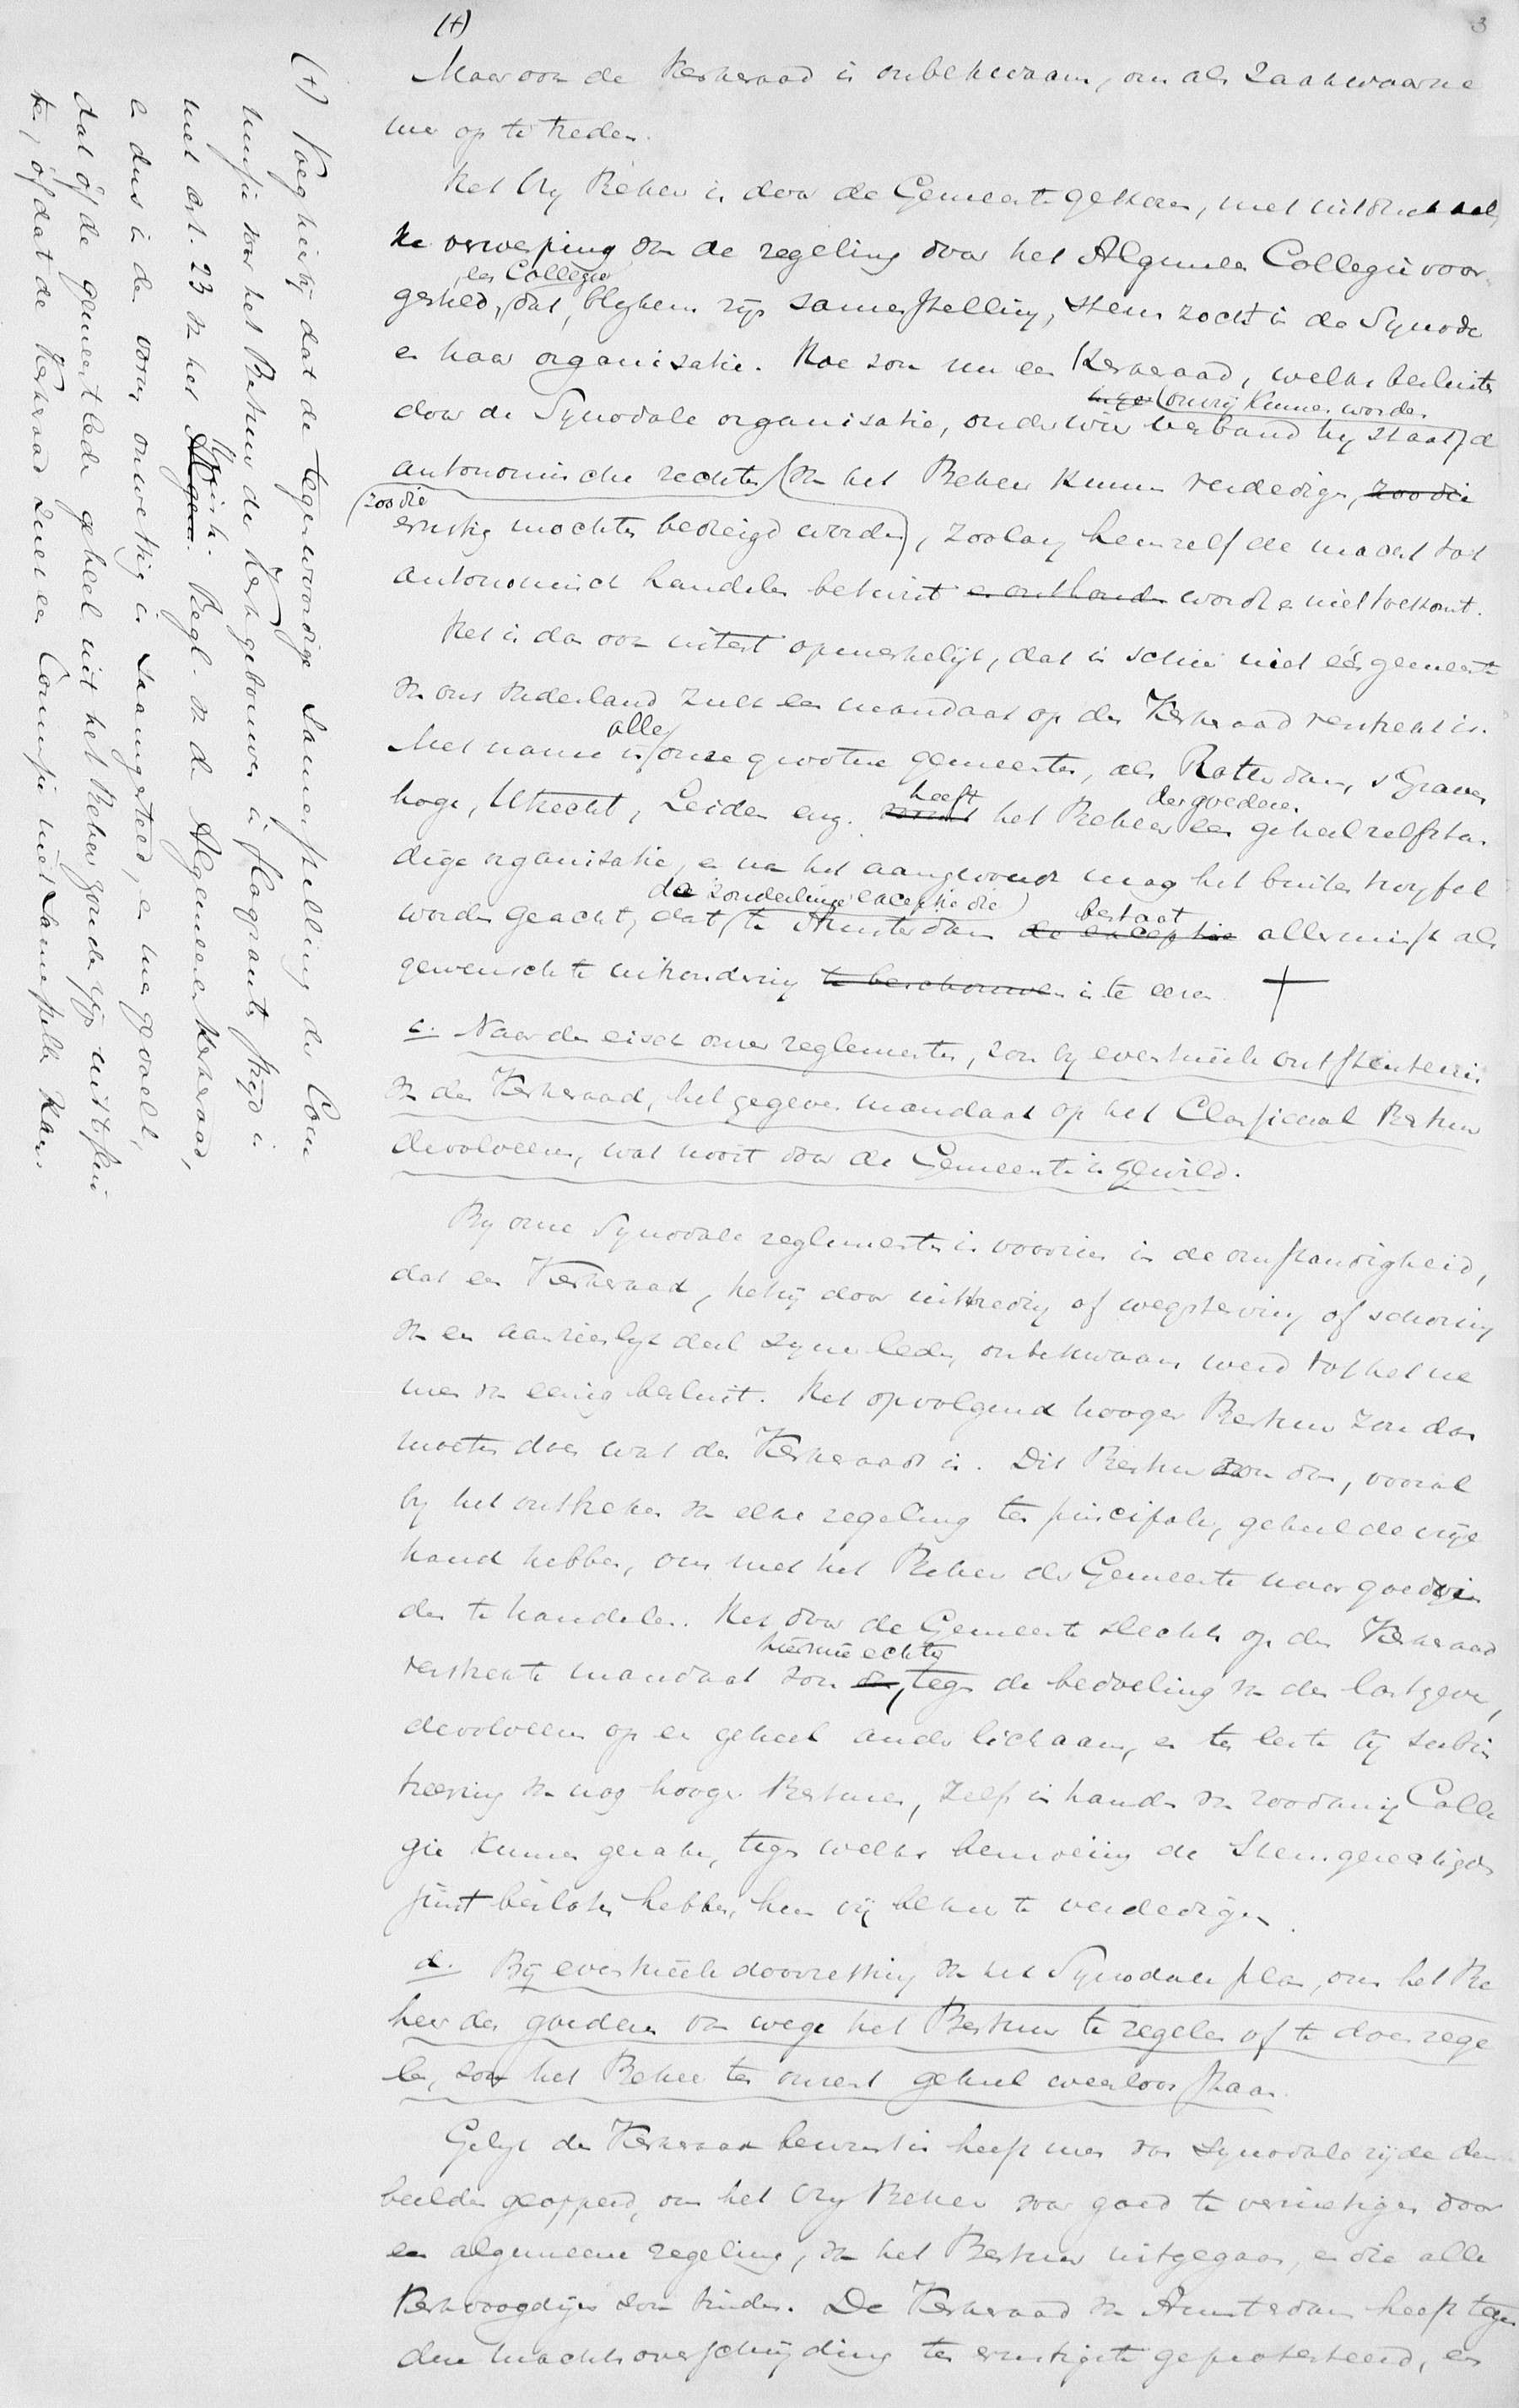 (+)
3
Maar ook de Kerkeraad is onbekwaam, om als zaakwaarne
mer op te treden.
Het Vrij Beheer is door de Gemeente gekozen, met uitdrukkelij
ke verwerping van de regeling door het Algemeen Collegie voor-
gesteld, een Collegie dat, blijkens zijn samenstelling, steun zocht in de Synode
en haar organisatie. Hoe zou nu een Kerkeraad, welks besluiten
door de Synodale organisatie, onder wier verband hij staat, onvrij kunnen worden, de
autonomische rechten van het Beheer kunnen verdedigen, zoo die
zoo die ernstig mochten bedreigd worden, zoolang hemzelf de macht tot
autonomisch handelen betwist en onthouden wordt en niet toekomt.
Het is dan ook uiterst opmerkelijk, dat in schier niet één gemeente
van ons Nederland zulk een mandaat op den Kerkeraad verstrekt is.
Met name in alle onze grootere gemeenten, als Rotterdam, s Graven
hage, Utrecht, Leiden enz. heeft het Beheer der goederen een geheel zelfstan
dige organisatie, en na het aangevoerde mag het buiten twijfel
worden geacht, dat de zonderlinge exceptie die te Amsterdam de exceptie bestaat allerminst als
gewenschte uitzondering te beschouwen is te eeren. +
c. Naar den eisch onzer reglementen, zou bij eventueele ontstentenis
van den Kerkeraad, het gegeven mandaat op het Classicaal Bestuur
devolveeren, wat nooit door de Gemeente is gewild.
Bij onze Synodale reglementen is voorzien in de omstandigheid,
dat een Kerkeraad, hetzij door uittreding of wegsterving of schorsing
van een aanzienlijk deel zijner leden, onbekwaam werd tot het ne
men van eenig besluit. Het opvolgend hooger Bestuur zou dan
moeten doen wat des Kerkeraads is. Dit Bestuur zou dan, vooral
bij het ontbreken van elke regeling ten principale, geheel de vrije
hand hebben, om met het Beheer der Gemeente naar goedvin
den te handelen. Het door de Gemeente slechts op den Kerkeraad
verstrekte mandaat zou hiermee echter, tegen de bedoeling van den lastgever,
devolveeren op een geheel ander lichaam, en ten leste bij subin
treding van nog hooger Besturen, zelfs in handen van zoodanig Colle
gie kunnen geraken, tegen welks bemoeiing de Stemgerechtigden
juist besloten hebben, hun vrij beheer te verdedigen.
d. Bij eventueele doorzetting van het Synodale plan, om het Be
heer der goederen van wege het Bestuur te regelen of te doen rege
len, zou het Beheer ten onzent geheel weerloos staan.
Gelijk den Kerkeraad bewust is heeft men van Synodale zijde den
beelden geopperd, om het Vrij Beheer voor goed te vernietigen door
een algemeene regeling, van het Bestuur uitgegaan, en die alle
Kerkvoogdijen zou binden. De Kerkeraad van Amsterdam heeft tegen
deze machtsoverschrijding ten ernstigste geprotesteerd, en
(+) Voeg hierbij dat de tegenwoordige samenstelling der Com
missie voor het Bestuur der Kerkgebouwen in flagranten strijd is
met art. 23 van het Algem. Regl. van den Algemeenen Kerkeraad,
en dus in den vorm onwettig is saamgesteld, en mee gevoelt,
dat óf de gemeenteleden geheel uit het Beheer zouden zijn uitsluit
ten, óf dat de Kerkeraad zulk een Commissie niet samenstellen kan.